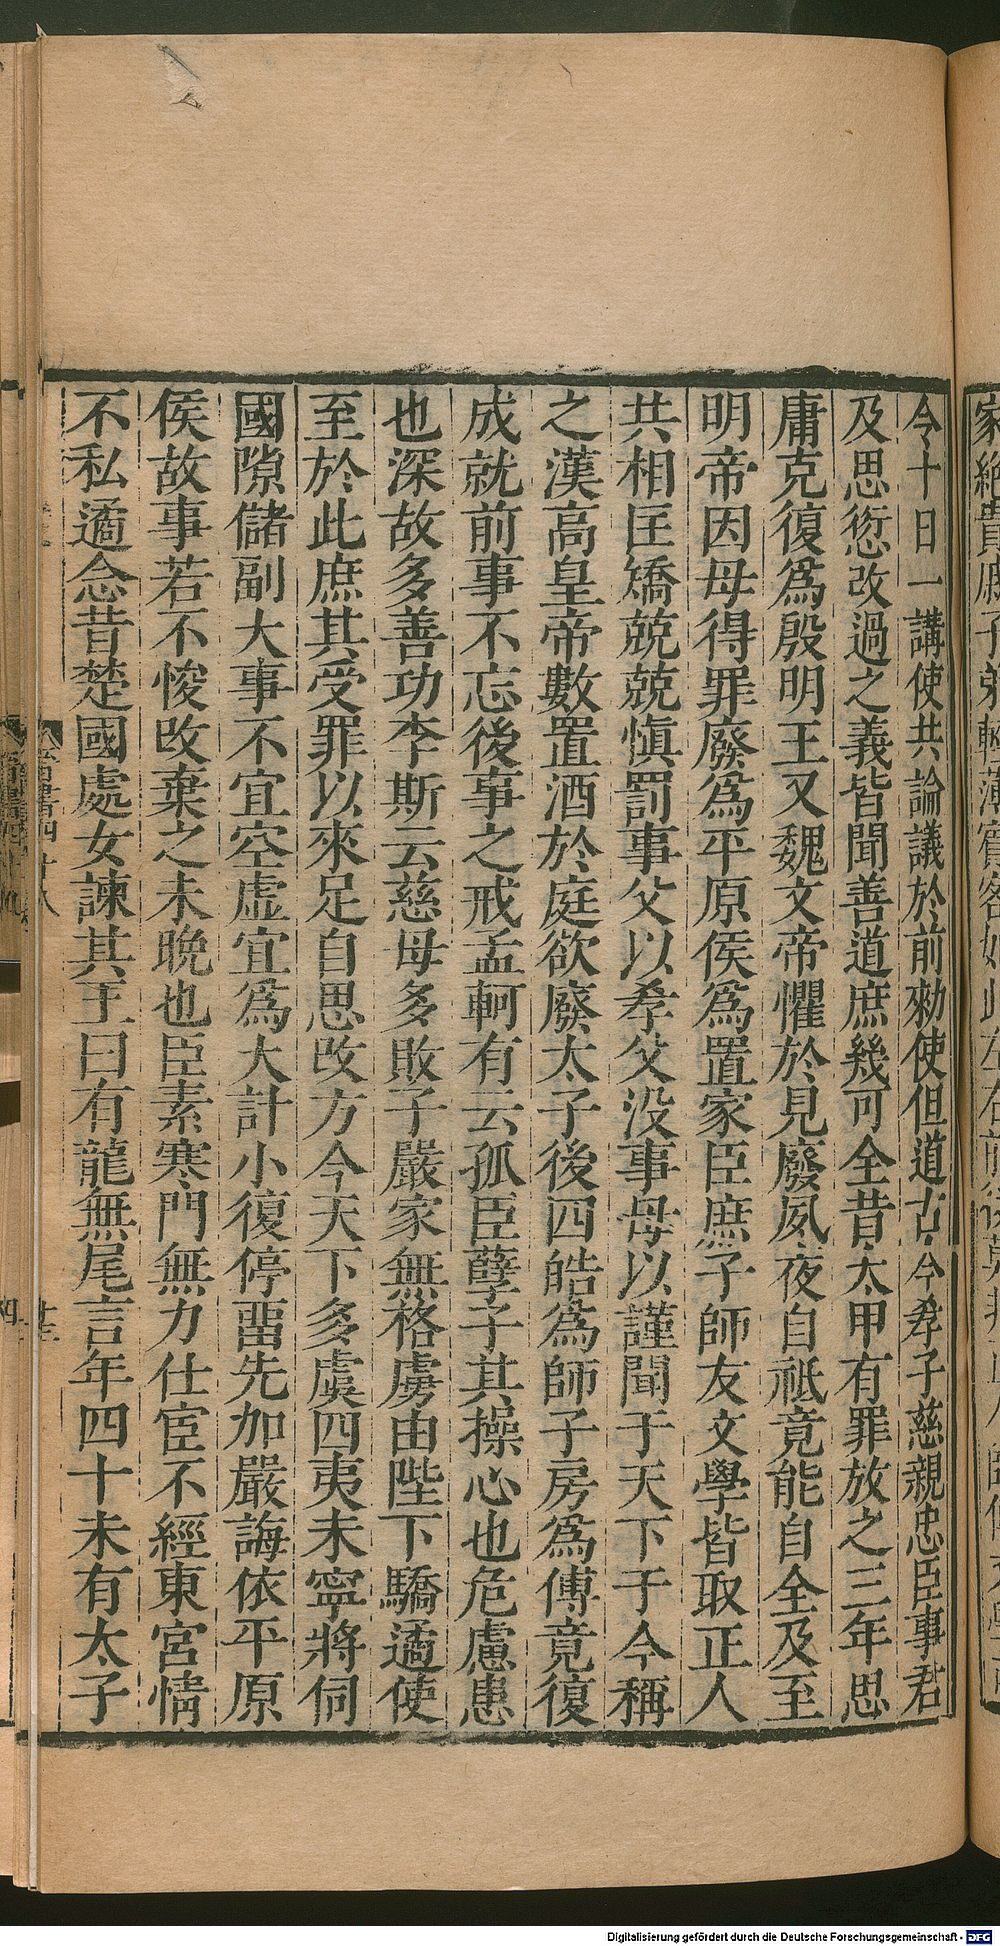 今十日一講使共論議於前勑使但道古今孝子慈親忠臣事君
及思愆改過之義皆聞善道庶幾可全昔太甲有罪放之三年思
庸克復爲殷明王又魏文帝懼於見廢夙夜自祗竟能自全及至
明帝因母得罪廢爲平原侯爲置家臣庶子師友文學皆取正人
共相匡矯兢兢愼罰事父以孝父没事母以謹聞于天下于今稱
之漢高皇帝數置酒於庭欲廢太子後四皓爲師子房爲傅竟復
成就前事不忘後事之戒孟軻有云孤臣孽子其操心也危慮患
也深故多善功李斯云慈母多敗子嚴家無格虜由陛下驕遹使
至於此庶其受罪以來足自思改方今天下多虞四夷未寧將伺
國隙儲副大事不宜空虚宜爲大計小復停畱先加嚴誨依平原
侯故事若不悛改棄之未晩也臣素寒門無力仕宦不經東宮情
不私遹念昔楚國處女諫其王曰有龍無尾言年四十未有太子
四十八
Digitalisierung gefördert durch die Deutsche Forschungsgemeinschaft - DFG